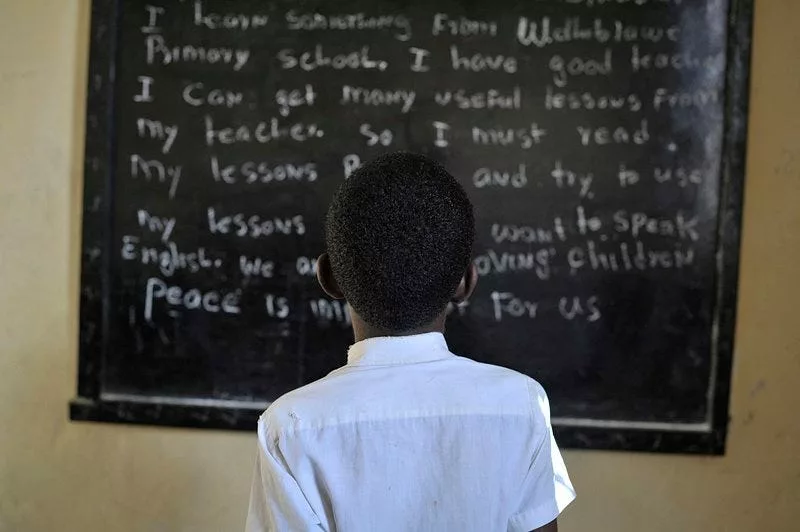 I learn something From
Primary school. I have good teach
I can get many useful lessons From
my teacher. so I must read.
my lessons and try to use
my lessons want to speak
English. we children
Peace is For us